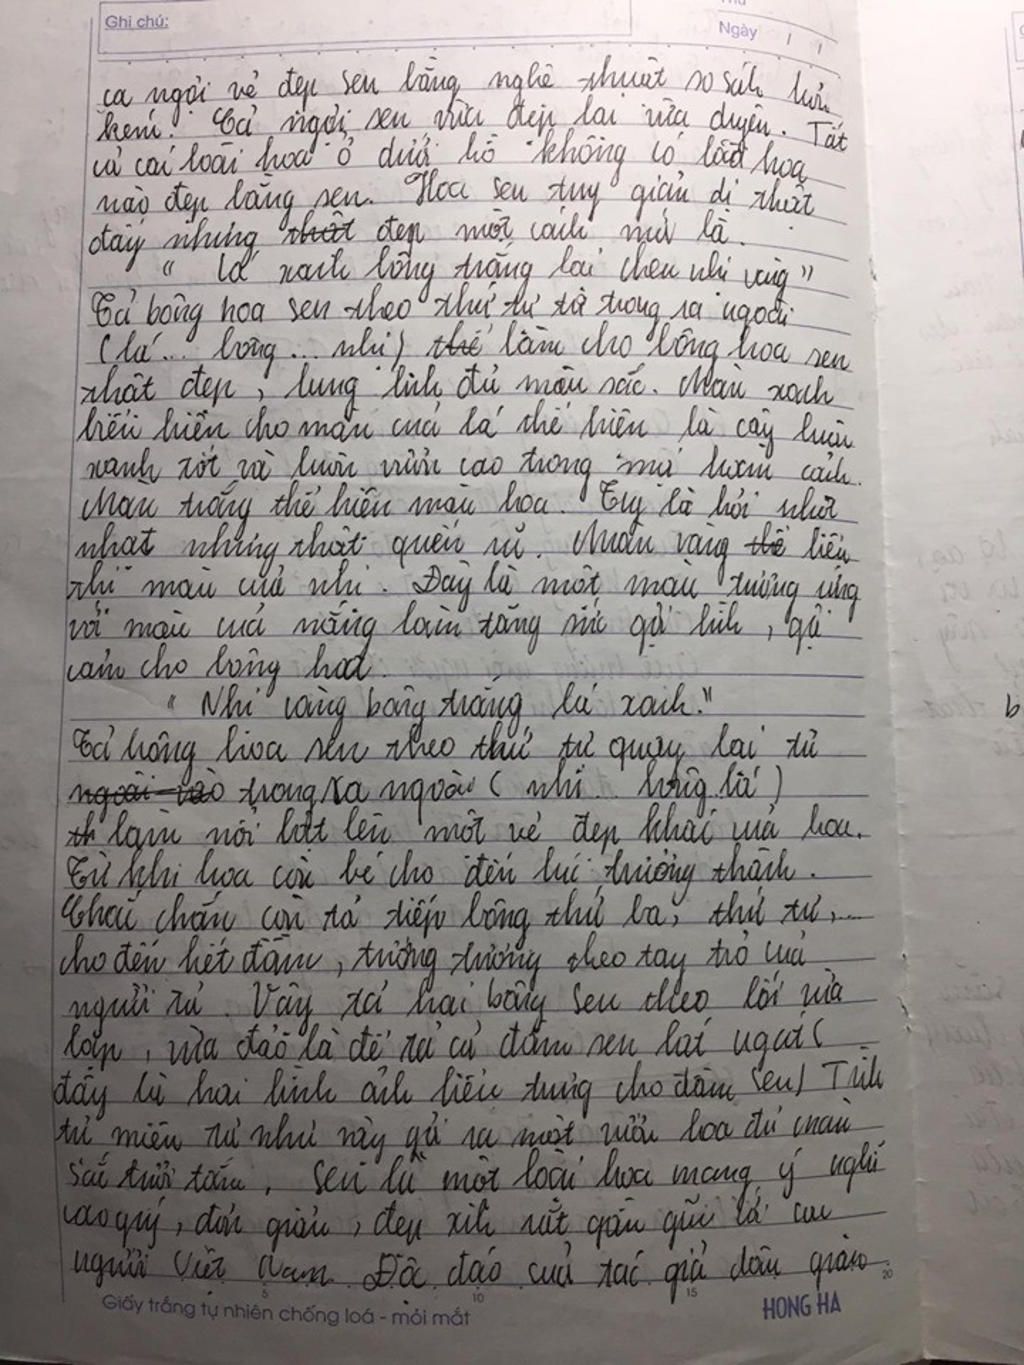 Ghi chú:
Thứ
Ngày / /
ca ngợi vẻ đẹp sen bằng nghệ thuật so sánh hơn
kém. Cả ngợi sen vừa đẹp lại vừa duyên. Tất
cả các loài hoa ở dưới hồ không có loài hoa
nào đẹp bằng sen. Hoa sen tuy giản dị thật
đấy nhưng thật đẹp một cách mới lạ.
" Lá xanh bông trắng lại chen nhị vàng"
Tả bông hoa sen theo thứ tự từ trong ra ngoài
(lá... bông... nhị) thể làm cho bông hoa sen
thật đẹp, lung linh đủ màu sắc. Màu xanh
biểu hiện cho màu của lá thể hiện là cây luôn
xanh tốt và luôn vươn cao trong mọi hoàn cảnh.
Màu trắng thể hiện màu hoa. Tuy là hơi nhợt
nhạt nhưng thật quyến rũ. Màu vàng thể biểu
thị màu của nhị. Đây là một màu tương ứng
với màu của nắng làm tăng sức gợi hình, gợi
cảm cho bông hoa.
" Nhị vàng bông trắng lá xanh."
Tả bông hoa sen theo thứ tự quay lại từ
ngoài vào trong ra ngoài ( nhị... bông lá )
th làm nổi bật lên một vẻ đẹp khác của hoa.
Từ khi hoa còn bé cho đến lúc trưởng thành.
Chắc chắn còn tả tiếp bông thứ ba, thứ tư,...
cho đến hết đầm, tưởng tượng theo tay trỏ của
người tả. Vậy tả hai bông sen theo lối vừa
lặp, vừa đảo là để tả cả đầm sen bát ngát (
đấy là hai hình ảnh biểu trưng cho đầm sen) Trình
tự miêu tả như này gợi ra một vườn hoa đủ màu
sắc tươi tắn. Sen là một loài hoa mang ý nghĩ
cao quý, đơn giản, đẹp xinh rất gần gũi là con
người Việt Nam. Độc đáo của tác giả dân gian
5 10 15 20
Giấy trắng tự nhiên chống loá - mỏi mắt
HONG HA